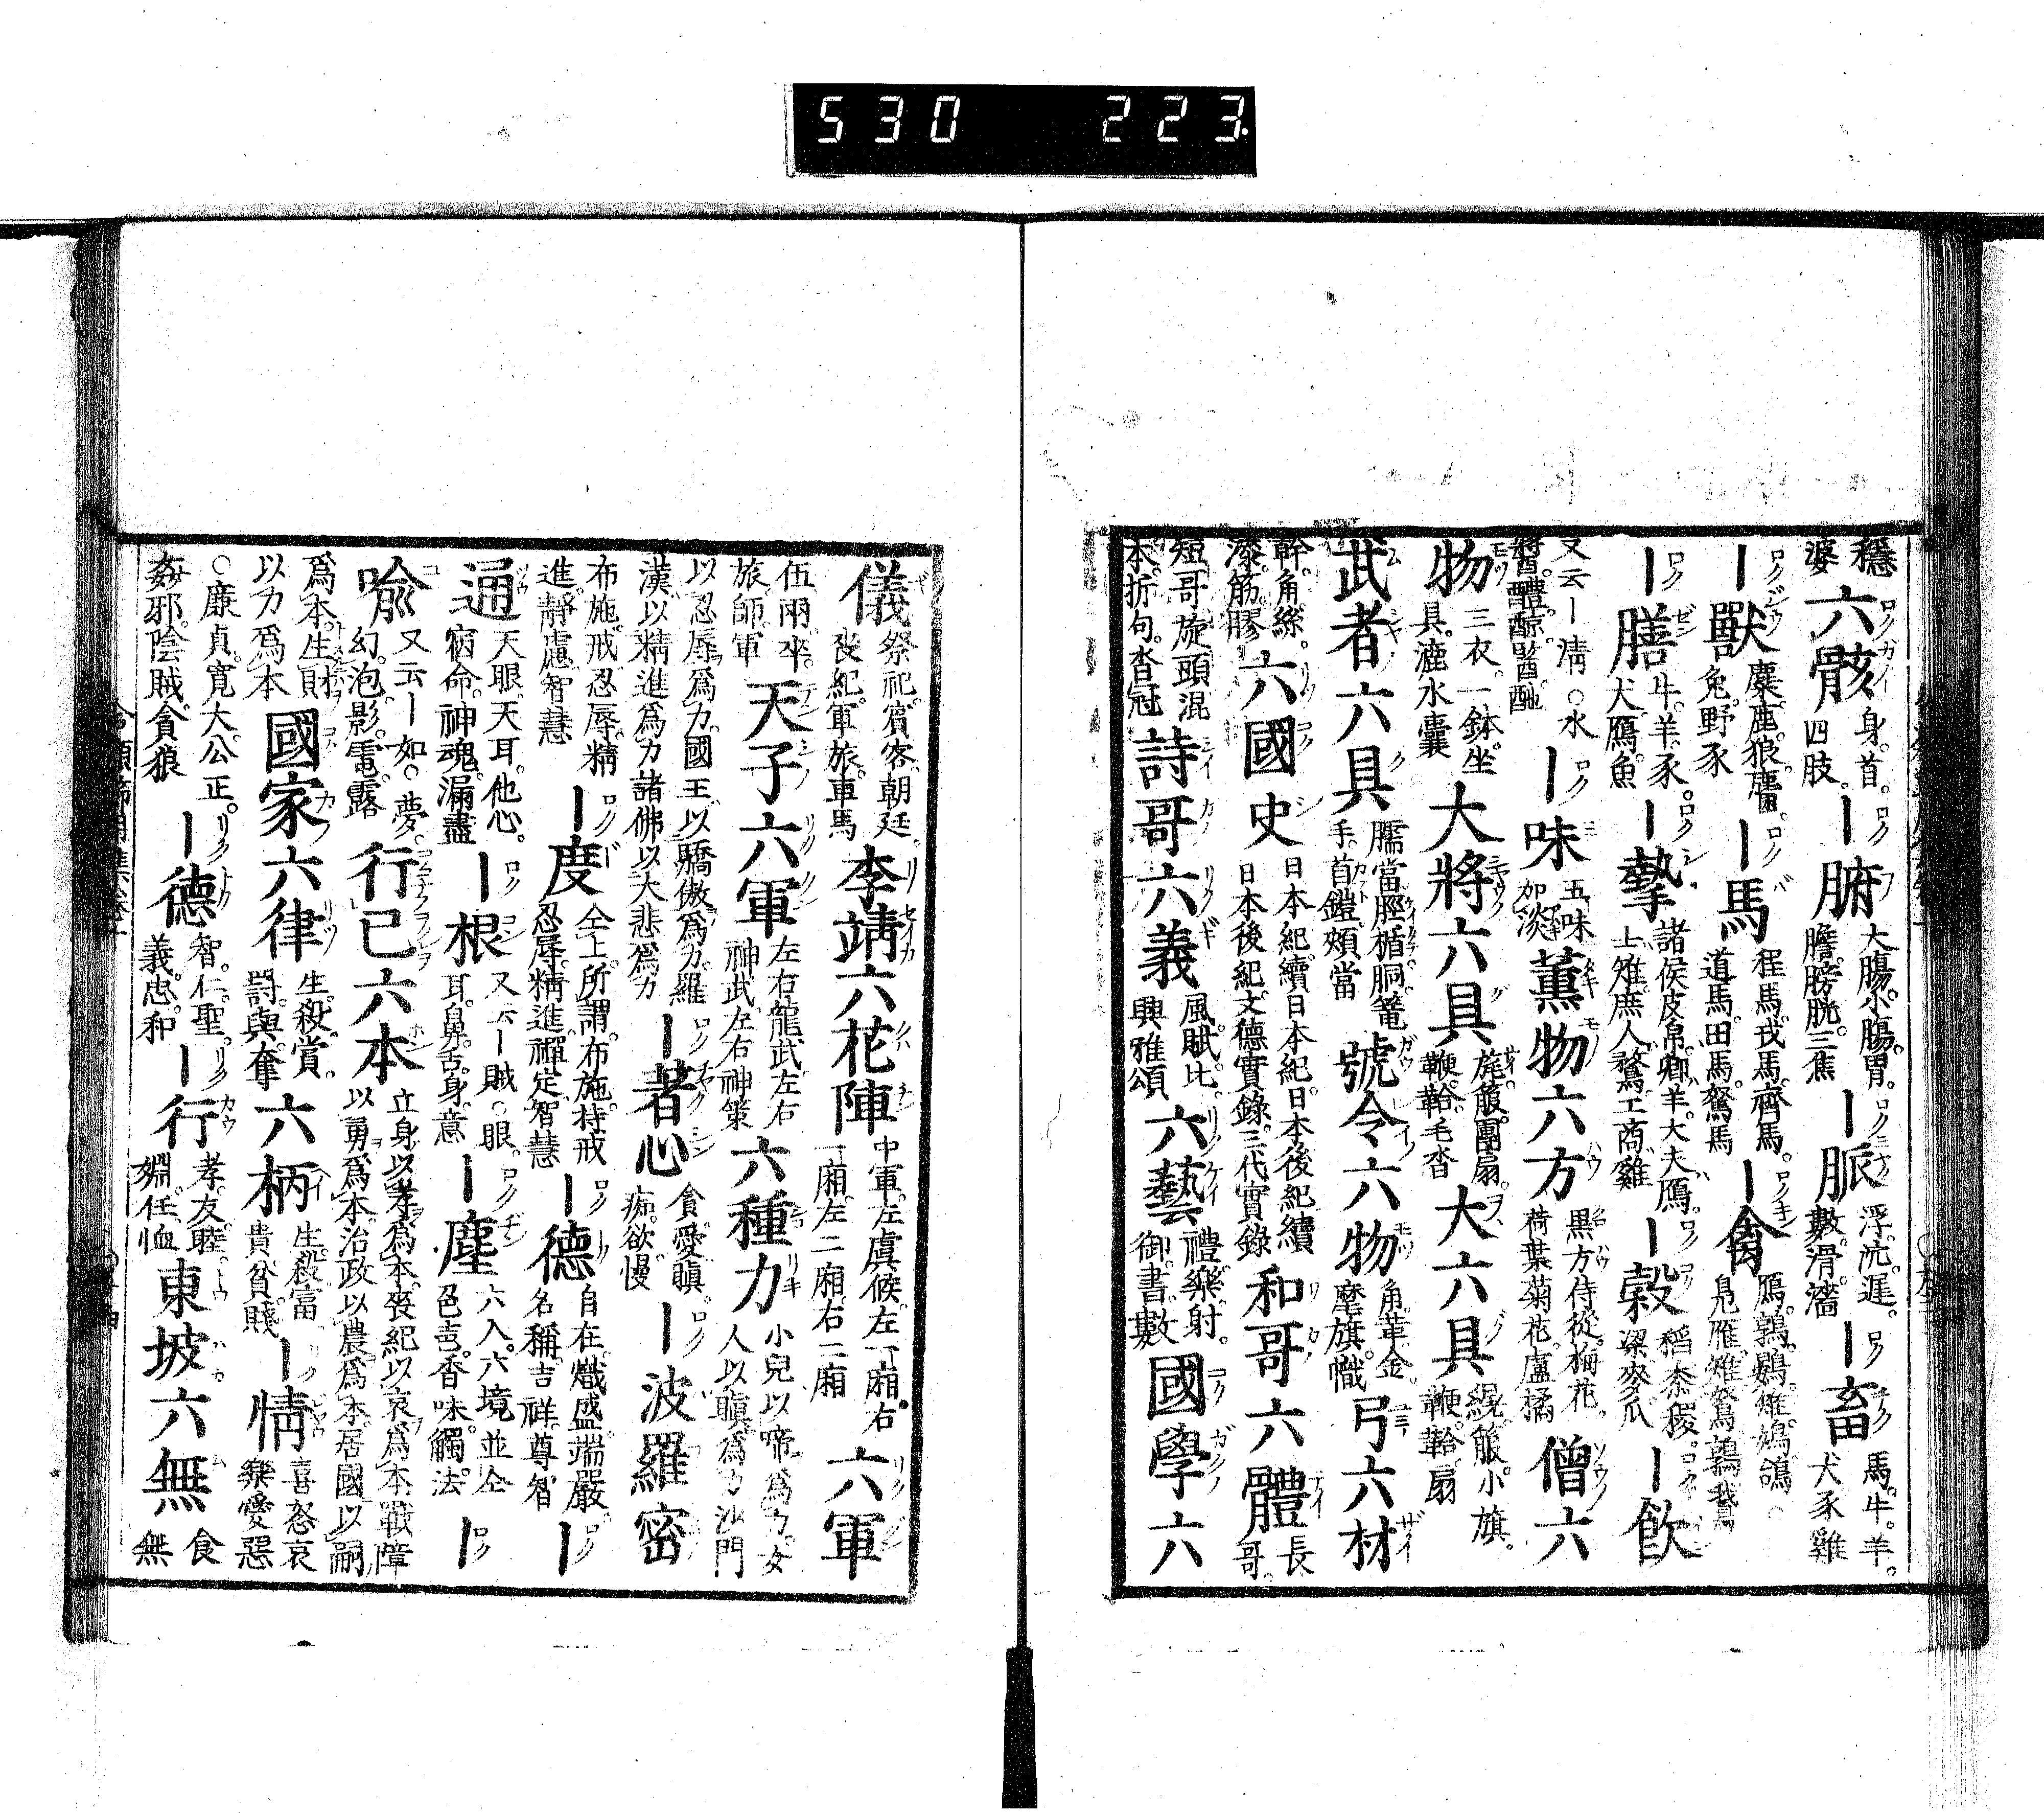 530 223.
穩婆 六骸 身。首。四肢。 ー腑 大腸。小腸。胃。膽。膀胱。三焦 ー脈 浮。沈。遲。數。滑。濇 ー畜 馬。牛。羊。犬豕雞
ー獸 麋。鹿。狼。麕。兔。野豕 ー馬 種馬。戎馬。齊馬。道馬。田馬。駑馬 ー禽 鴈。鶉。鷃。雉。鳩。鴿。
ー膳 牛。羊。豕。犬鴈。魚 ー摯 諸侯皮帛。卿羊。大夫鴈。士雉。庶人鶩。工商雞 ー穀 稻黍稷。粱麥瓜 ー飲
又云ー清 ○水 ー味 五味加淡 薫物六方 黒方侍從。梅花。荷葉菊花。盧橘 僧六
物 三衣。一鉢。坐具。漉水囊 大將六具 團扇。鞭 毛沓 大六具 小旗。鞭 扇
武者六具 臑當脛楯 籠手。首鎧。頬當 號令六物 角革金。麾旗。幟 弓六材
幹。角絲。漆。筋。膠 六國史 日本紀。續日本紀。日本後紀續日本後紀。文德實錄。三代實錄 和哥六體 長哥。
短哥旋頭混本。折句。沓冠 詩哥六義 風。賦。比。興雅頌 六藝 禮。樂。射。御。書。數 國學六
儀 祭祀。賓客。朝廷。喪紀。軍旅。車馬 李靖六花陣 中軍。左虞候。左一廂。右一廂。左二廂。右二廂 六軍
伍兩卒。旅師軍 天子六軍 左右龍武。左右神武。左右神策 六種力 小兒以啼為力。女人以瞋為力沙門
以忍辱爲力。國王以驕傲爲力。羅漢以精進爲力諸佛以大悲爲力 ー著心 貪愛瞋。痴。欲慢 ー波羅密
布施。戒忍辱。精進。靜慮。智慧 ー度 仝上。所謂。布施。持戒忍辱。精進。禪定。智慧 ー德 自在。熾盛。端嚴。名稱吉祥尊智 ー
通 天眼。天耳。他心。宿命。神魂。漏盡 ー根 又云ー賊。○眼。耳。鼻。舌。身。意 ー塵 六入。六境並仝色。香。味。觸。法 ー
喻 又云ー如○夢。幻。泡。影。電。露 行已六本 立身以孝爲本。喪紀以哀爲本戰陣以勇爲本。治政以農爲本。居國以嗣
爲本。生財以力爲本 國家六律 生。殺。賞。罸。與奪 六柄 生殺富貴貧。賤 ー情 喜怒哀樂愛惡
○廉貞。寬大。公正。姦邪。陰賊。貪狼 ー德 智。仁。聖。義。忠。和 ー行 孝。友。睦。婣。任。恤 東坡六無 食無